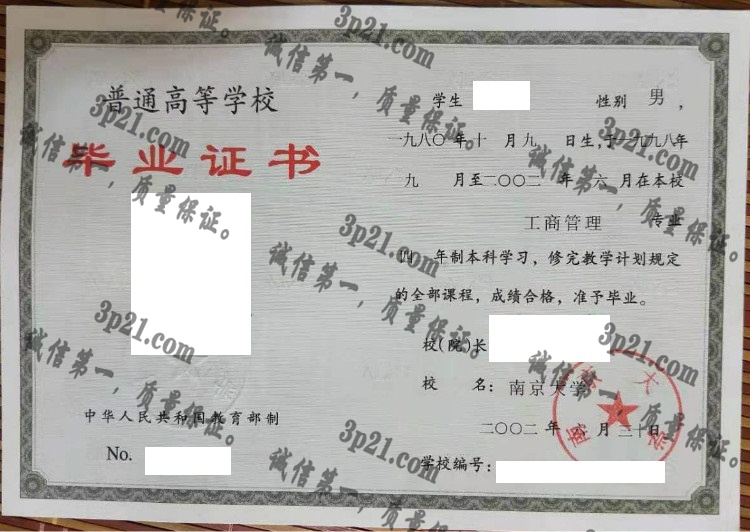 普通高等学校
毕业证书
中华人民共和国教育部制
No.
学生 性别 男 ,
一九八〇 年 十 月 九 日生, 于 一九九八 年
九 月至 二〇〇二 年 六 月在本校
工商管理 专业
四 年制本科学习, 修完教学计划规定
的全部课程, 成绩合格, 准予毕业。
校(院)长
校 名: 南京大学
二〇〇二 年 六 月 三十 日
学校编号:
3p21.com
诚信第一, 质量保证。
3p21.com
诚信第一, 质量保证。
3p21.com
诚信第一, 质量保证。
3p21.com
诚信第一, 质量保证。
3p21.com
诚信第一, 质量保证。
3p21.com
诚信第一, 质量保证。
3p21.com
诚信第一, 质量保证。